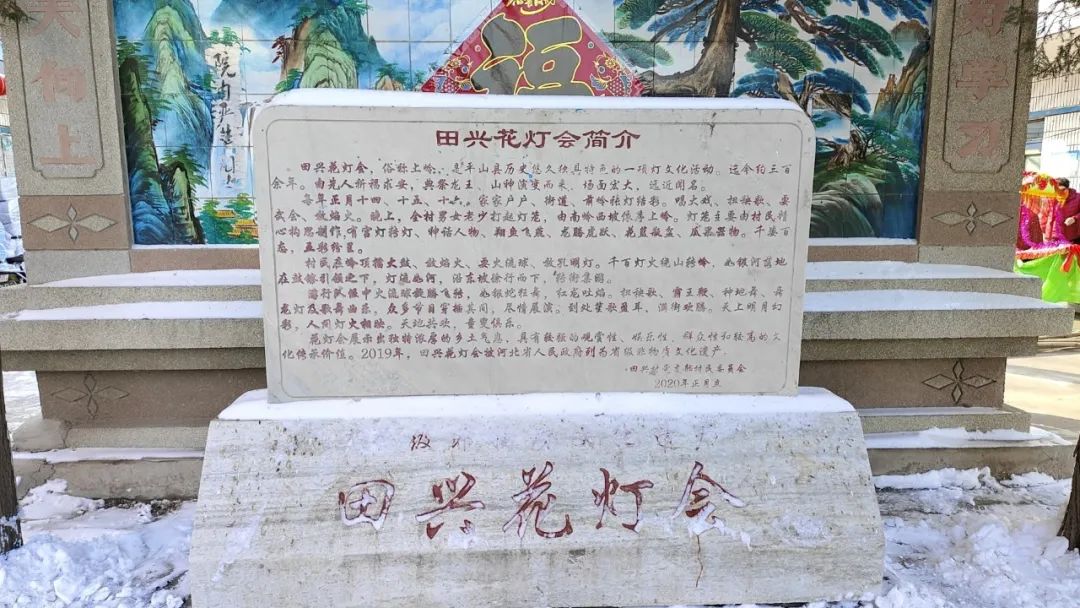 美何上
好学习
院内
福
田兴花灯会简介
田兴花灯会，俗称上岭，是平山县历史悠久独具特色的一项灯文化活动。迄今约三百
余年。由先人祈福求安，典祭龙王、山神演变而来，场面宏大，远近闻名。
每年正月十四、十五、十六，家家户户、街道、黄岭张灯结彩。唱大戏、扭秧歌、耍
武会、放焰火。晚上，全村男女老少打起灯笼，由南岭西坡依序上岭。灯笼主要由村民精
心构思制作，有宫灯转灯、神话人物、翔鱼飞燕、龙腾虎跃、花篮歌盆、瓜果器物。千姿百
态，五彩纷呈。
村民在岭顶擂大鼓、放焰火、耍火流球、放孔明灯。千百灯火绕山转岭，如银河落地
在鼓镲引领之下，灯流如河，沿东坡徐行而下，转街集团。
游行队伍中火流球旋腾飞转，如银蛇狂舞，红龙吐焰。扭秧歌、霸王鞭、种地舞、舞
龙灯及歌舞曲乐，众多节目穿插其间，尽情展演。到处笙歌鱼耳，满街欢腾。天上明月幻
彩，人间灯火相映。天地共欢，童叟俱乐。
花灯会展示出独特浓厚的乡土气息，具有较强的观赏性、娱乐性、群众性和较高的文
化传承价值。2019年，田兴花灯会被河北省人民政府列为省级非物质文化遗产。
田兴村党支部村民委员会
2020年正月立
级非
田兴花灯会